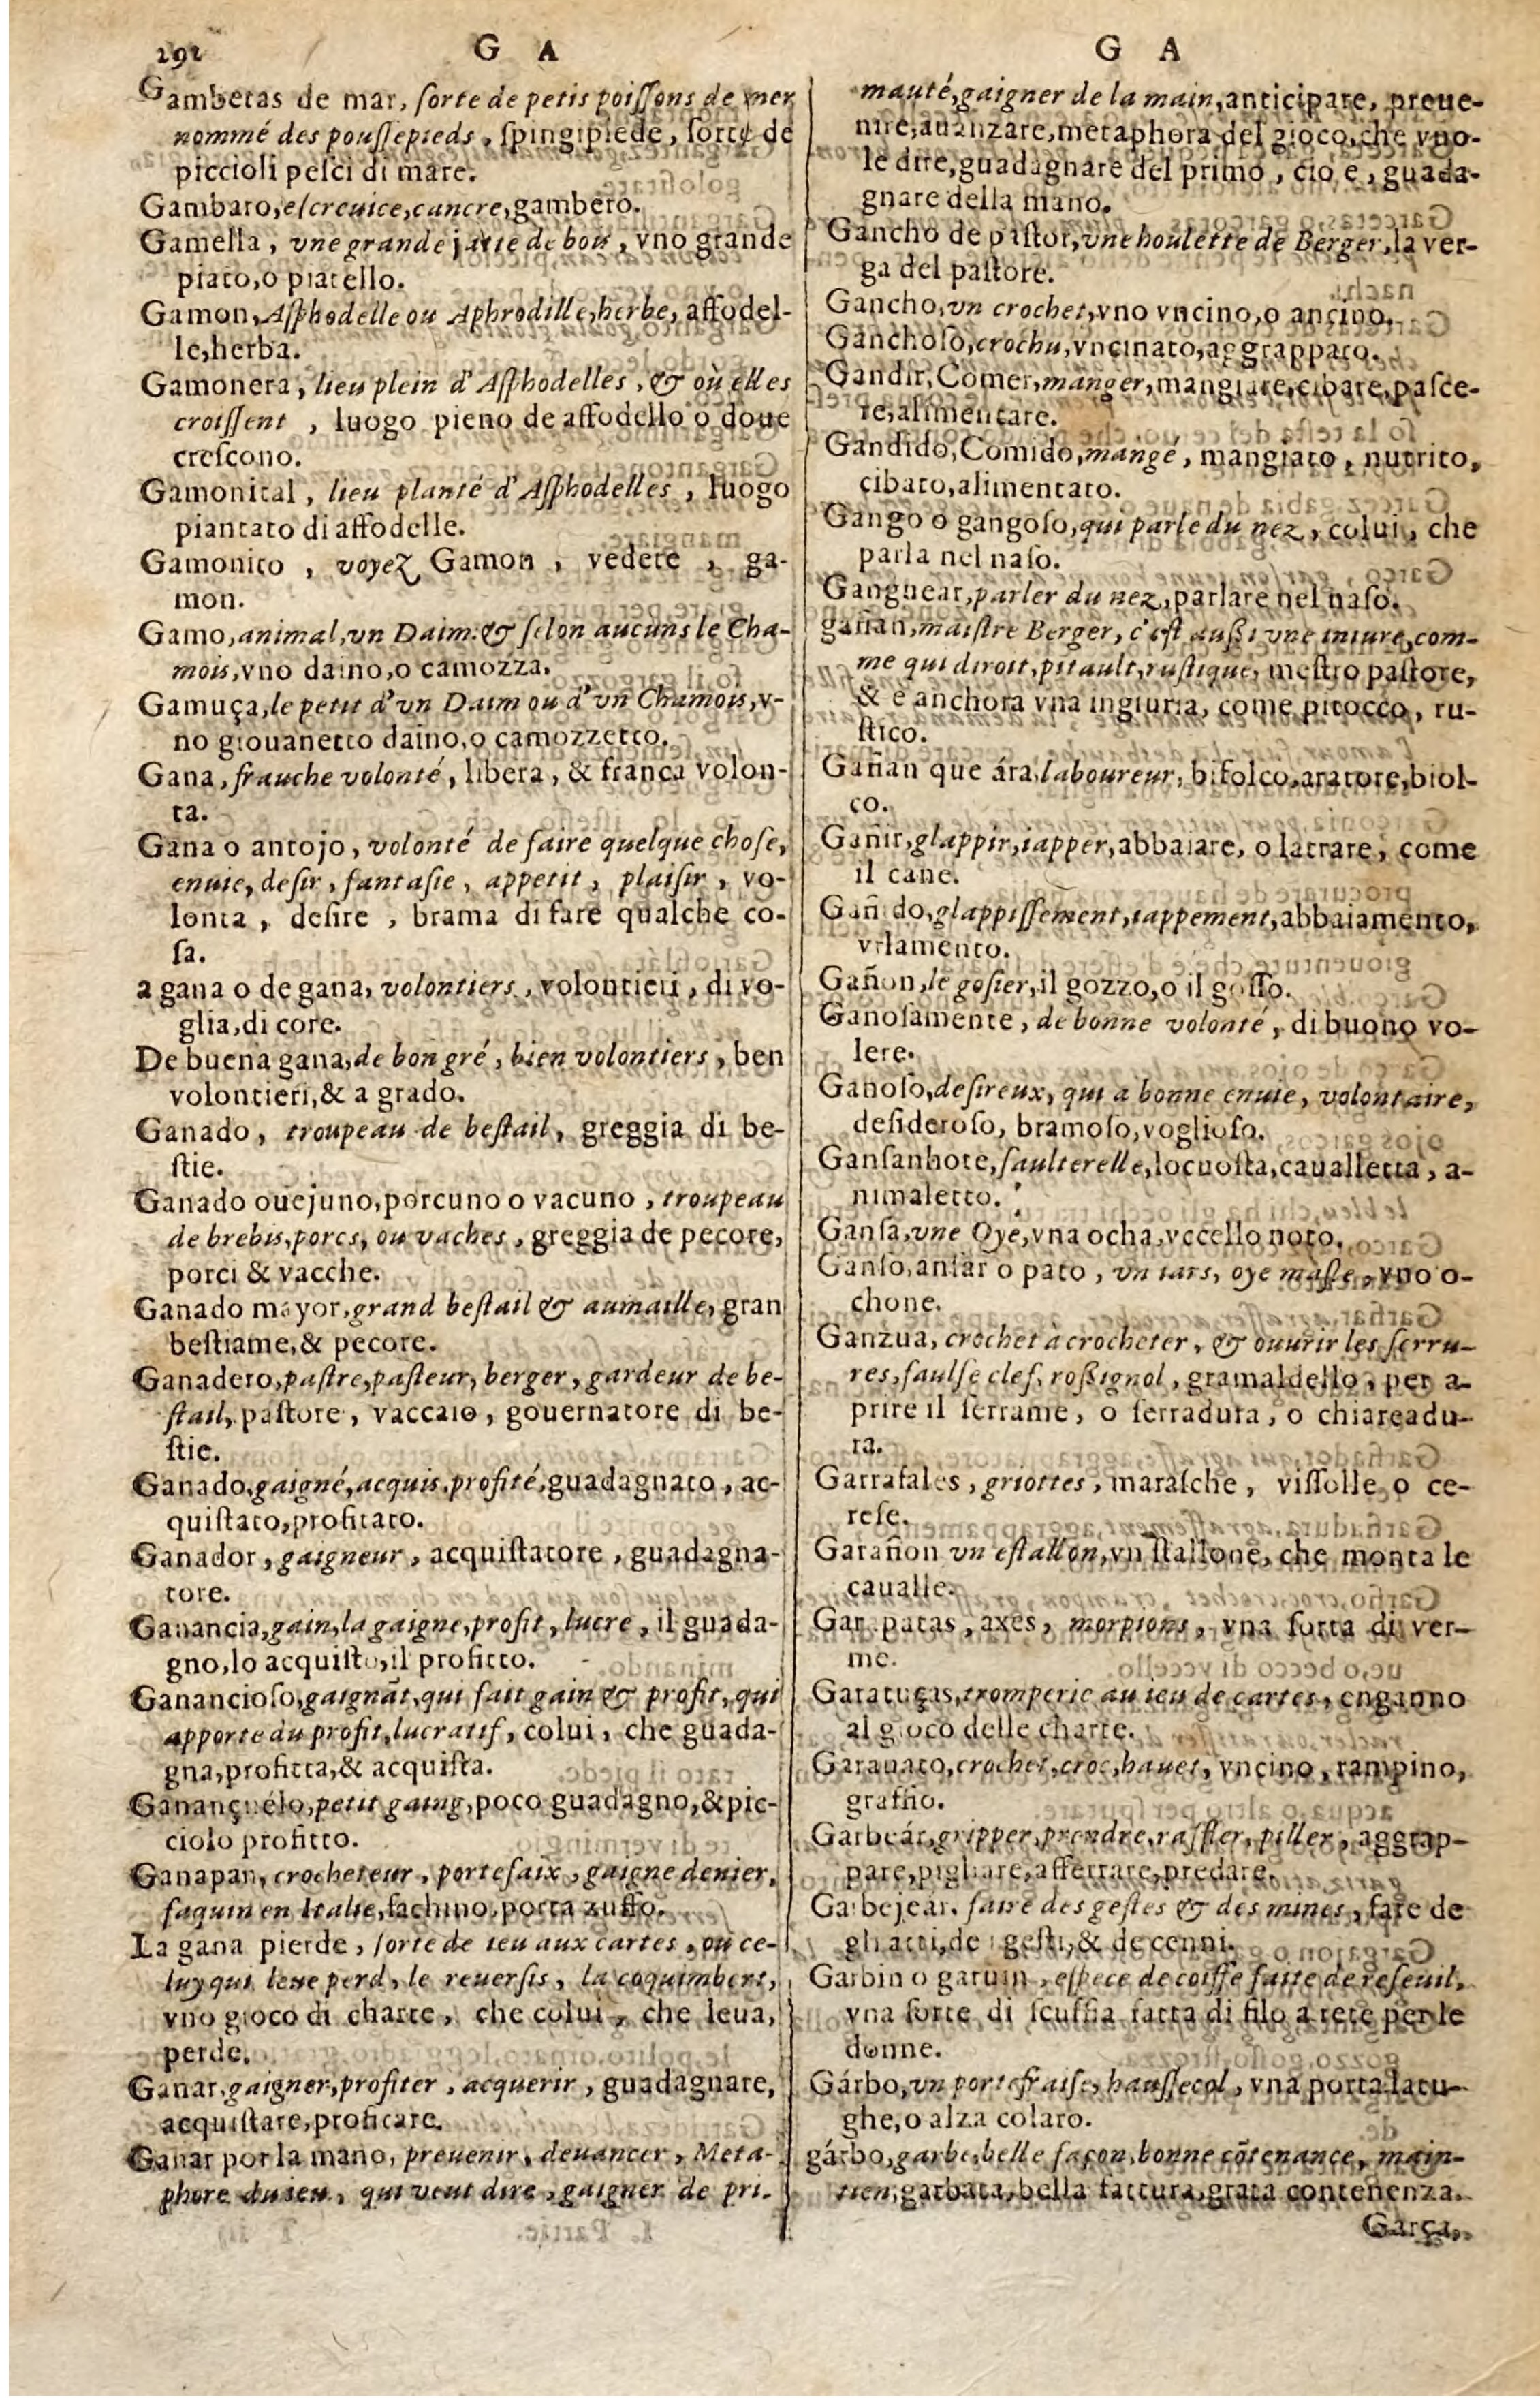 292
G A
G A
Gambetas de mar, ſorte de petis poiſſons de mer
nommé des pouſſepieds, ſpingipiede, ſorte de
piccioli peſci di mare.
Gambaro, eſcreuice, cancre, gambero.
Gamella, vne grande jatte de bois, vno grande
piato, o piatello.
Gamon, Aſphodelle ou Aphrodille, herbe, affodel-
le, herba.
Gamonera, lieu plein d'Aſphodelles, & où elles
croiſſent, luogo pieno de affodello o doue
creſcono.
Gamonital, lieu planté d'Aſphodelles, luogo
piantato di affodelle.
Gamonito, voyez Gamon, vedete, ga-
mon.
Gamo, animal, vn Daim: & ſelon aucuns le Cha-
mois, vno daino, o camozza.
Gamuça, le petit d'vn Daim ou d'vn Chamois, v-
no giouanetto daino, o camozzetto.
Gana, frauche volonté, libera, & franca volon-
ta.
Gana o antojo, volonté de faire quelque choſe,
enuie, deſir, fantaſie, appetit, plaiſir, vo-
lonta, deſire, brama di fare qualche co-
ſa.
a gana o de gana, volontiers, volontieri, di vo-
glia, di core.
De buena gana, de bon gré, bien volontiers, ben
volontieri, & a grado.
Ganado, troupeau de beſtail, greggia di be-
ſtie.
Ganado ouejuno, porcuno o vacuno, troupeau
de brebis, porcs, ou vaches, greggia de pecore,
porci & vacche.
Ganado mayor, grand beſtail & aumaille, gran
beſtiame, & pecore.
Ganadero, paſtre, paſteur, berger, gardeur de be-
ſtail, paſtore, vaccaio, gouernatore di be-
ſtie.
Ganado, gaigné, acquis, profité, guadagnato, ac-
quiſtato, profitato.
Ganador, gaigneur, acquiſtatore, guadagna-
tore.
Ganancia, gain, la gaigne, profit, lucre, il guada-
gno, lo acquiſto, il profitto.
Ganancioſo, gaignãt, qui fait gain & profit, qui
apporte du profit, lucratif, colui, che guada-
gna, profitta, & acquiſta.
Ganançuélo, petit gaing, poco guadagno, & pic-
ciolo profitto.
Ganapan, crocheteur, portefaix, gaigne denier,
faquin en Italie, fachino, porta zuffo.
La gana pierde, ſorte de ieu aux cartes, ou ce-
luy qui leue perd, le reuerſis, la coquimbert,
vno gioco di charte, che colui, che leua,
perde.
Ganar, gaigner, profiter, acquerir, guadagnare,
acquiſtare, profitare.
Ganar por la mano, preuenir, deuancer, Meta-
phore du ieu, qui veut dire, gaigner de pri-
mauté, gaigner de la main, anticipare, preue-
nire, auanzare, metaphora del gioco, che vno-
le dire, guadagnare del primo, cio e, guada-
gnare della mano.
Gancho de paſtor, vne houlette de Berger, la ver-
ga del paſtore.
Gancho, vn crochet, vno vncino, o ancino.
Ganchoſo, crochu, vncinato, aggrappato.
Gandir, Comer, manger, mangiare, cibare, paſce-
re, alimentare.
Gandido, Comido, mangé, mangiato, nutrito,
cibato, alimentato.
Gango o gangoſo, qui parle du nez, colui, che
parla nel naſo.
Ganguear, parler du nez, parlare nel naſo.
gañan, maiſtre Berger, c'eſt auſſi vne iniure, com-
me qui diroit, pitault, ruſtique, meſtro paſtore,
& e anchora vna ingiuria, come pitocco, ru-
ſtico.
Gañan que ára, laboureur, bifolco, aratore, biol-
co.
Gañir, glappir, iapper, abbaiare, o latrare, come
il cane.
Gañido, glappiſſement, iappement, abbaiamento,
vrlamento.
Gañon, le goſier, il gozzo, o il goſſo.
Ganoſamente, de bonne volonté, di buono vo-
lere.
Ganoſo, deſireux, qui a bonne enuie, volontaire,
deſideroſo, bramoſo, voglioſo.
Ganſanhote, ſaulterelle, locuoſta, caualletta, a-
nimaletto.
Ganſa, vne Oye, vna ocha, vccello noto.
Ganſo, anſar o pato, vn iars, oye maſle, vno o-
chone.
Ganzua, crochet à crocheter, & ouurir les ſerru-
res, faulſe clef, roſſignol, gramaldello, per a-
prire il ſerrame, o ſerradura, o chiareadu-
ra.
Garrafales, griottes, maraſche, viſſolle o ce-
reſe.
Garañon vn eſtallon, vn ſtallone, che monta le
caualle.
Garrapatas, axes, morpions, vna ſorta di ver-
me.
Garatuças, tromperie au ieu de cartes, enganno
al gioco delle charte.
Garauato, crochet, croc, hauet, vncino, rampino,
graffio.
Garbeár, gripper, prendre, raffler, piller, aggrap-
pare, pigliare, afferrare, predare.
Garbejear, faire des geſtes & des mines, fare de
gli atti, de i geſti, & de cenni.
Garbin o garuin, eſpece de coiffe faite de reſeuil,
vna ſorte di ſcuffia fatta di filo a rete per le
donne.
Gárbo, vn portefraiſe, hauſſecol, vna porta latu-
ghe, o alza colaro.
gárbo, garbe, belle façon, bonne cõtenance, main-
tien, garbata, bella fattura, grata contenenza.
Garça,